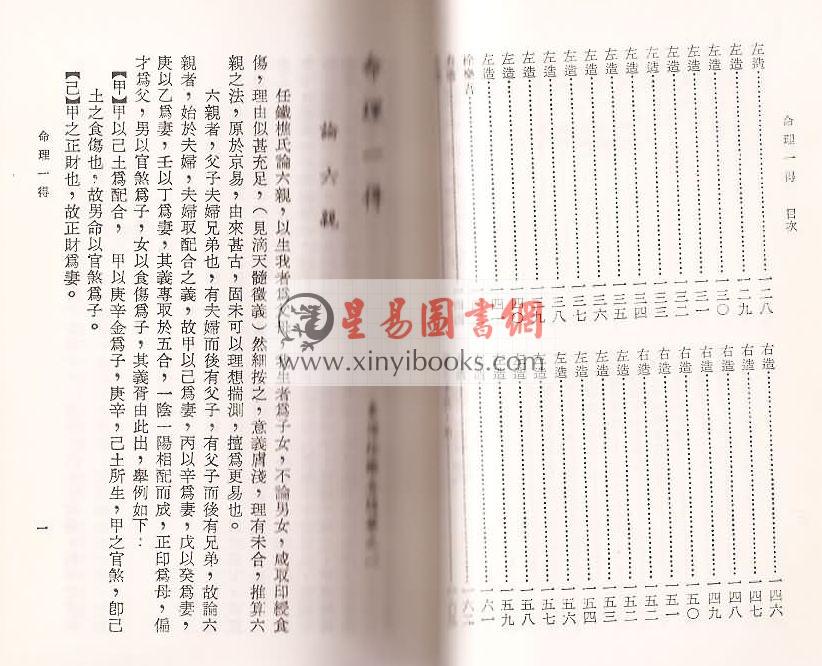 命理一得 目次
左造……一二八
左造……一二九
左造……一三〇
左造……一三一
左造……一三二
左造……一三三
左造……一三四
左造……一三五
左造……一三六
左造……一三七
左造……一三八
左造……一三九
左造……一四〇
左造……一四一
徐樂吾
右造……一四六
右造……一四七
右造……一四八
右造……一四九
右造……一五〇
右造……一五一
右造……一五二
左造
左造……一五三
左造……一五四
左造……一五六
左造
右造……一五八
右造……一五九
右造……一六一
命理一得
論六親
任鐵樵氏論六親,以生我者爲父母,我生者爲子女,不論男女,咸取印綬食
傷,理由似甚充足,(見滴天髓徵義)然細按之,意義膚淺,理有未合,推算六
親之法,原於京易,由來甚古,固未可以理想揣測,擅爲更易也。
六親者,父子夫婦兄弟也,有夫婦而後有父子,有父子而後有兄弟,故論六
親者,始於夫婦,夫婦取配合之義,故甲以己爲妻,丙以辛爲妻,戊以癸爲妻,
庚以乙爲妻,壬以丁爲妻,其義專取於五合,一陰一陽相配而成,正印爲母,偏
才爲父,男以官煞爲子,女以食傷爲子,其義胥由此出,舉例如下:
【甲】甲以己土爲配合, 甲以庚辛金爲子,庚辛,己土所生,甲之官煞,卽己
土之食傷也,故男命以官煞爲子。
【己】甲之正財也,故正財爲妻。
命理一得
一
星易圖書網
www.xinyibooks.com